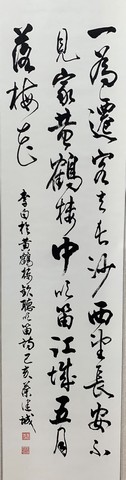 一為遷客去長沙西望長安不
見家黃鶴樓中吹笛江城五月
落梅花
李白於黃鶴樓欽聽吹笛詩己亥榮廷城